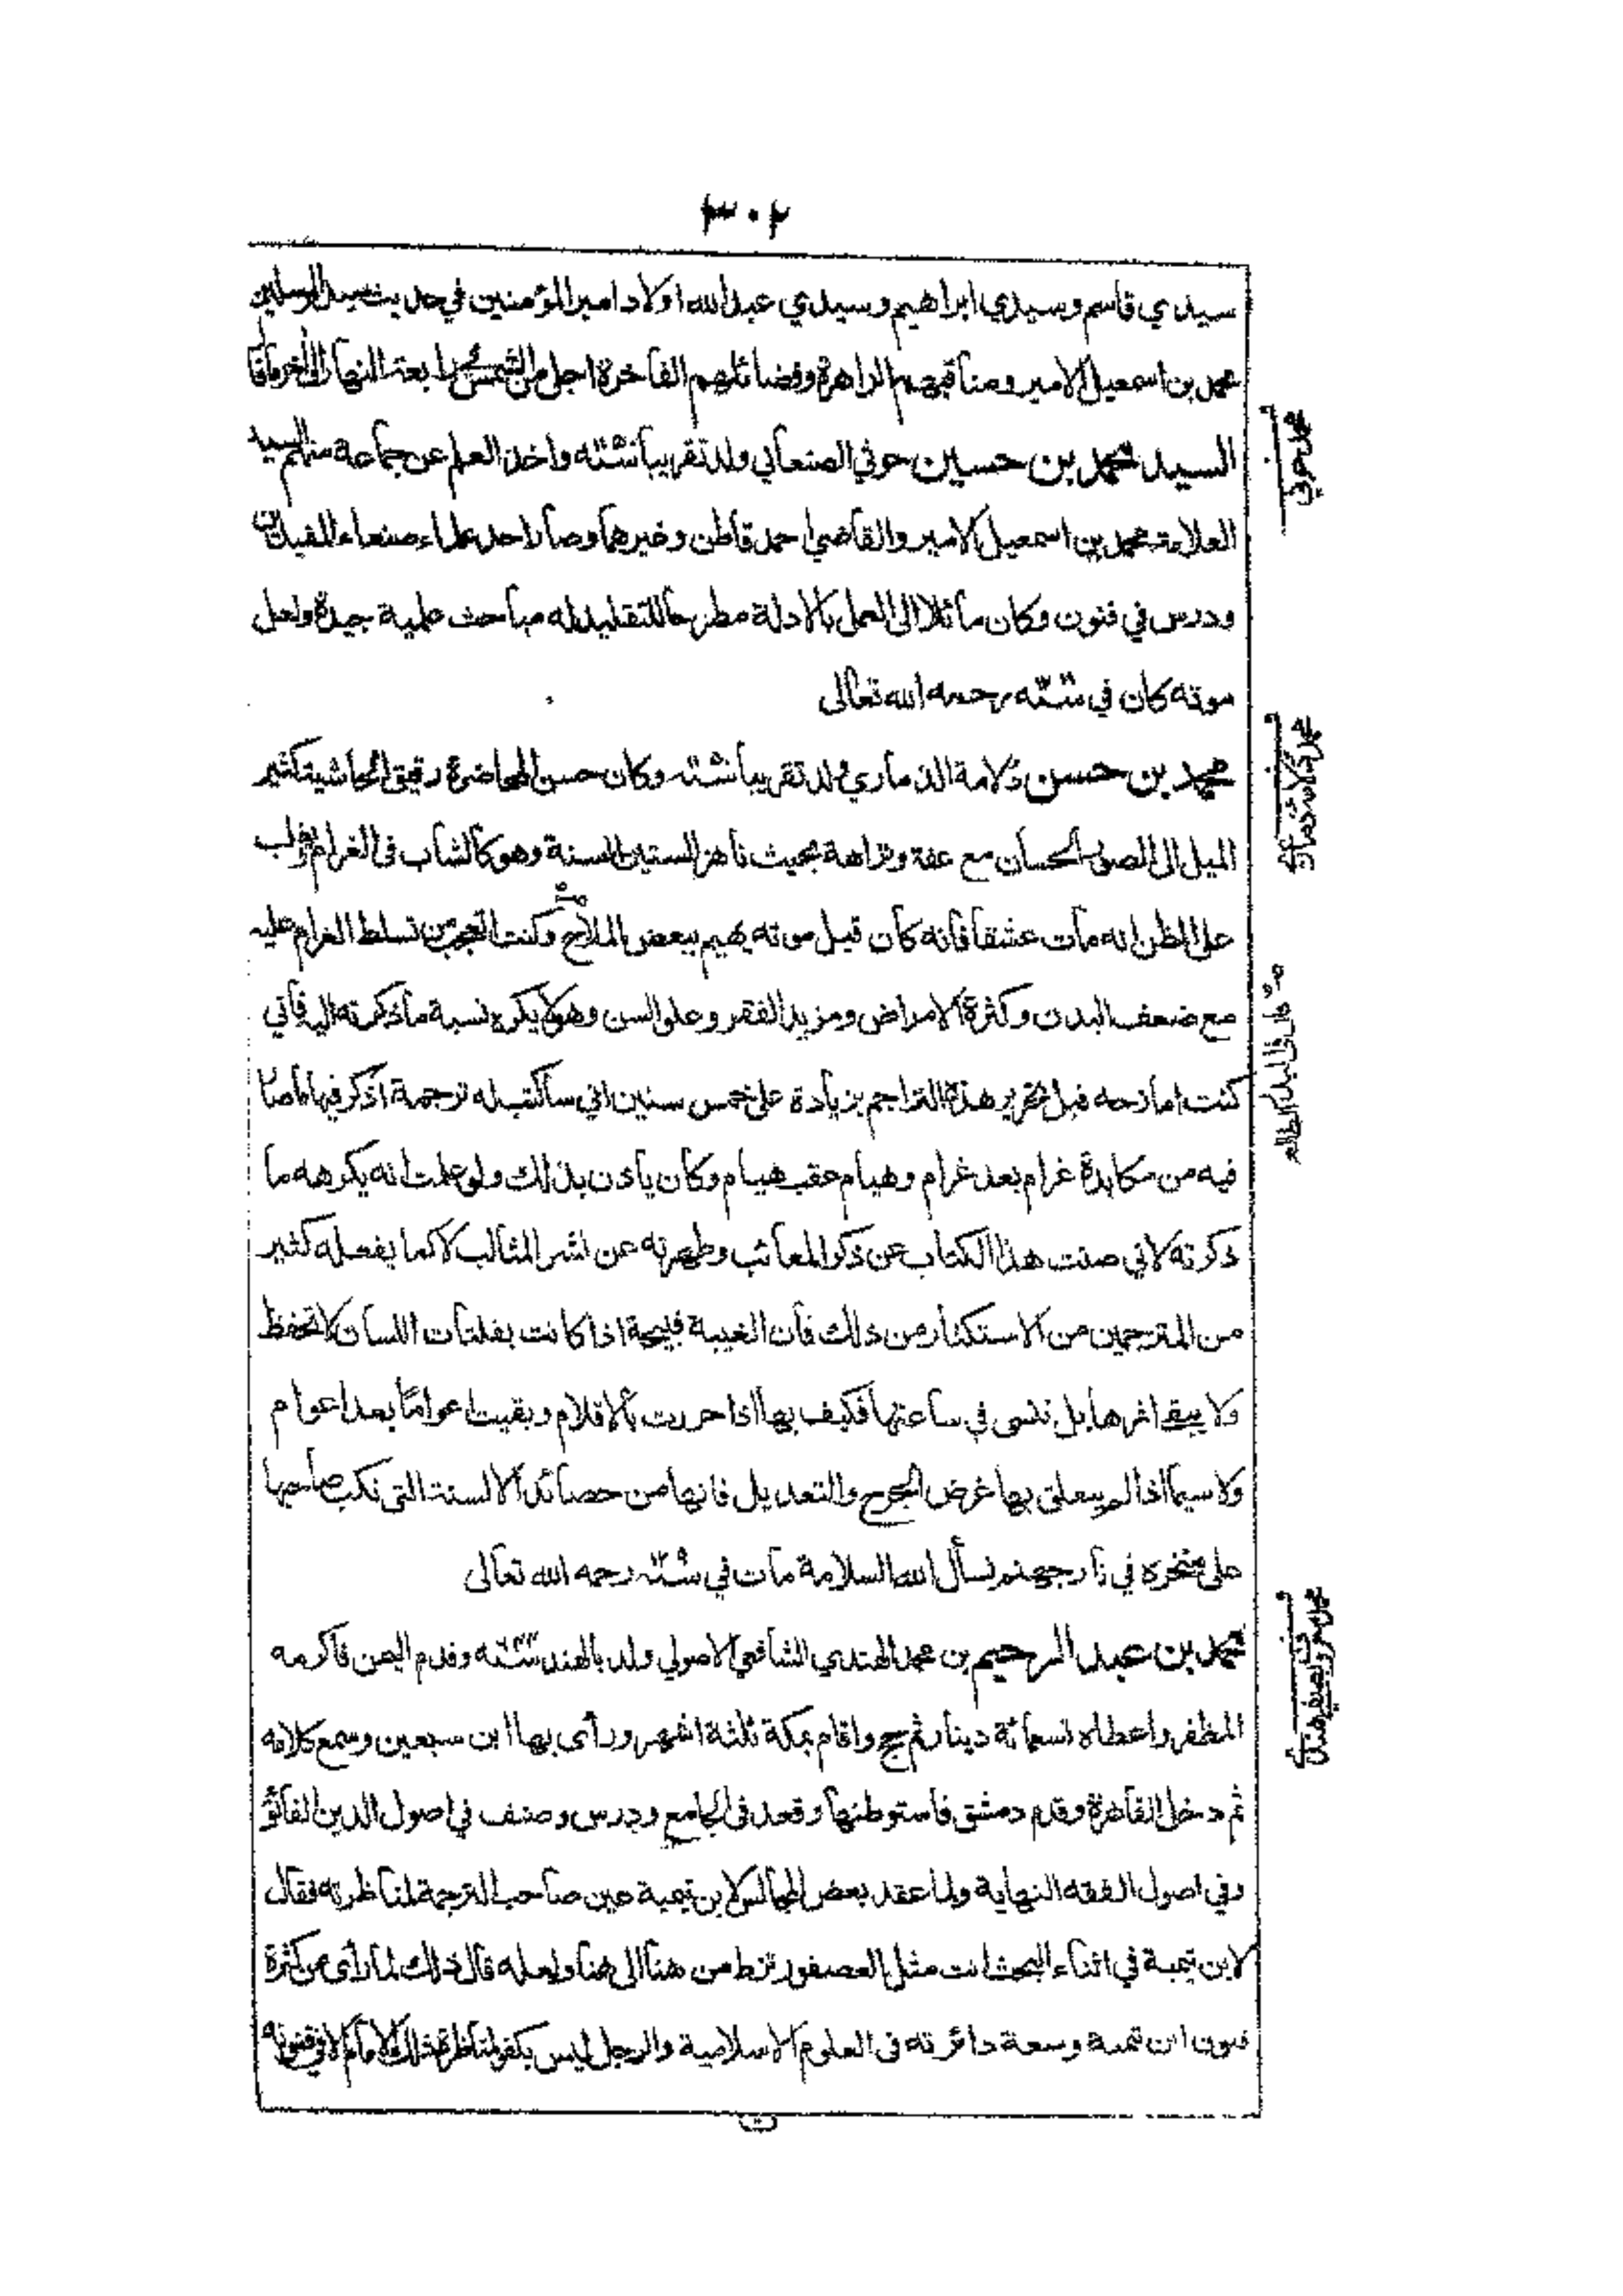 ٣٠٢
سيدي قاسم وسيدي ابراهيم وسيدي عبدالله اولاد امير المؤمنين في حديث سيد المرسلين
محمد بن اسمعيل الامير ومناقبهم الزاهرة وفضائلهم الفاخرة اجل من الشمس رابعة النهار الى اخر ما قا
السيد محمد بن حسين حوثي الصنعاني ولد تقريبا واخذ العلم عن جماعة منهم السيد
العلامة محمد بن اسمعيل الامير والقاضي احمد قاطن وغيرهما وصار احد علماء صنعاء المفيدين
ودرس في فنون وكان مائلا الى العمل بالادلة مطرحا للتقليد له مباحث علمية جيدة ولعل
موته كان في رحمه الله تعالى
محمد بن حسن دلامة الذماري ولد تقريبا وكان حسن المحاضرة رقيق الحاشية كثير
الميل الى الصور الحسان مع عفة ونزاهة بحيث ناهز الستين السنة وهو كالشاب في الغرام ويغلب
على الظن انه مات عشقا فانه كان قبل موته يهيم ببعض الملاح وكنت اتعجب من تسلط الغرام عليه
مع ضعف البدن وكثرة الامراض ومزيد الفقر وعلو السن وهو لا يكره نسبة ما ذكرته اليه فاني
كنت امازحه قبل تحرير هذه التراجم بزيادة على خمس سنين اني ساكتب له ترجمة اذكر فيها ما صا
فيه من مكابدة غرام بعد غرام وهيام عقب هيام وكان ياذن بذلك ولو علمت انه يكرهه ما
ذكرته لاني صنت هذا الكتاب عن ذكر المعائب وطهرته عن نشر المثالب لا كما يفعله كثير
من المترجمين من الاستكثار من ذلك فان الغيبة قبيحة اذا كانت بفلتات اللسان لا تحفظ
ولا يبقى اثرها بل تنسى في ساعتها فكيف بها اذا حررت بالاقلام وبقيت اعواما بعد اعوام
ولا سيما اذا لم يتعلق بها غرض الجرح والتعديل فانها من حصائد الالسنة التي تكب صاحبها
على منخره في نار جهنم نسأل الله السلامة مات في رحمه الله تعالى
محمد بن عبد الرحيم بن محمد الهندي الشافعي الاصولي ولد بالهند وقدم اليمن فاكرمه
المظفر واعطاه تسعمائة دينار ثم حج واقام بمكة ثلثة اشهر ورأى بها ابن سبعين وسمع كلامه
ثم دخل القاهرة وقدم دمشق فاستوطنها وقعد في الجامع ودرس وصنف في اصول الدين الفائق
وفي اصول الفقه النهاية ولما عقد بعض المجالس لابن تيمية عين صاحب الترجمة لمناظرته فقال
لابن تيمية في اثناء البحث انت مثل العصفور تنط من هنا الى هنا ولعله قال ذلك لما رأى من كثرة
فنون ابن تيمية وسعة دائرته في العلوم الاسلامية والرجل ليس بكفو لمناظرة ذلك الامام الا في فنونه
محمد حوثي
محمد دلامة ذماري